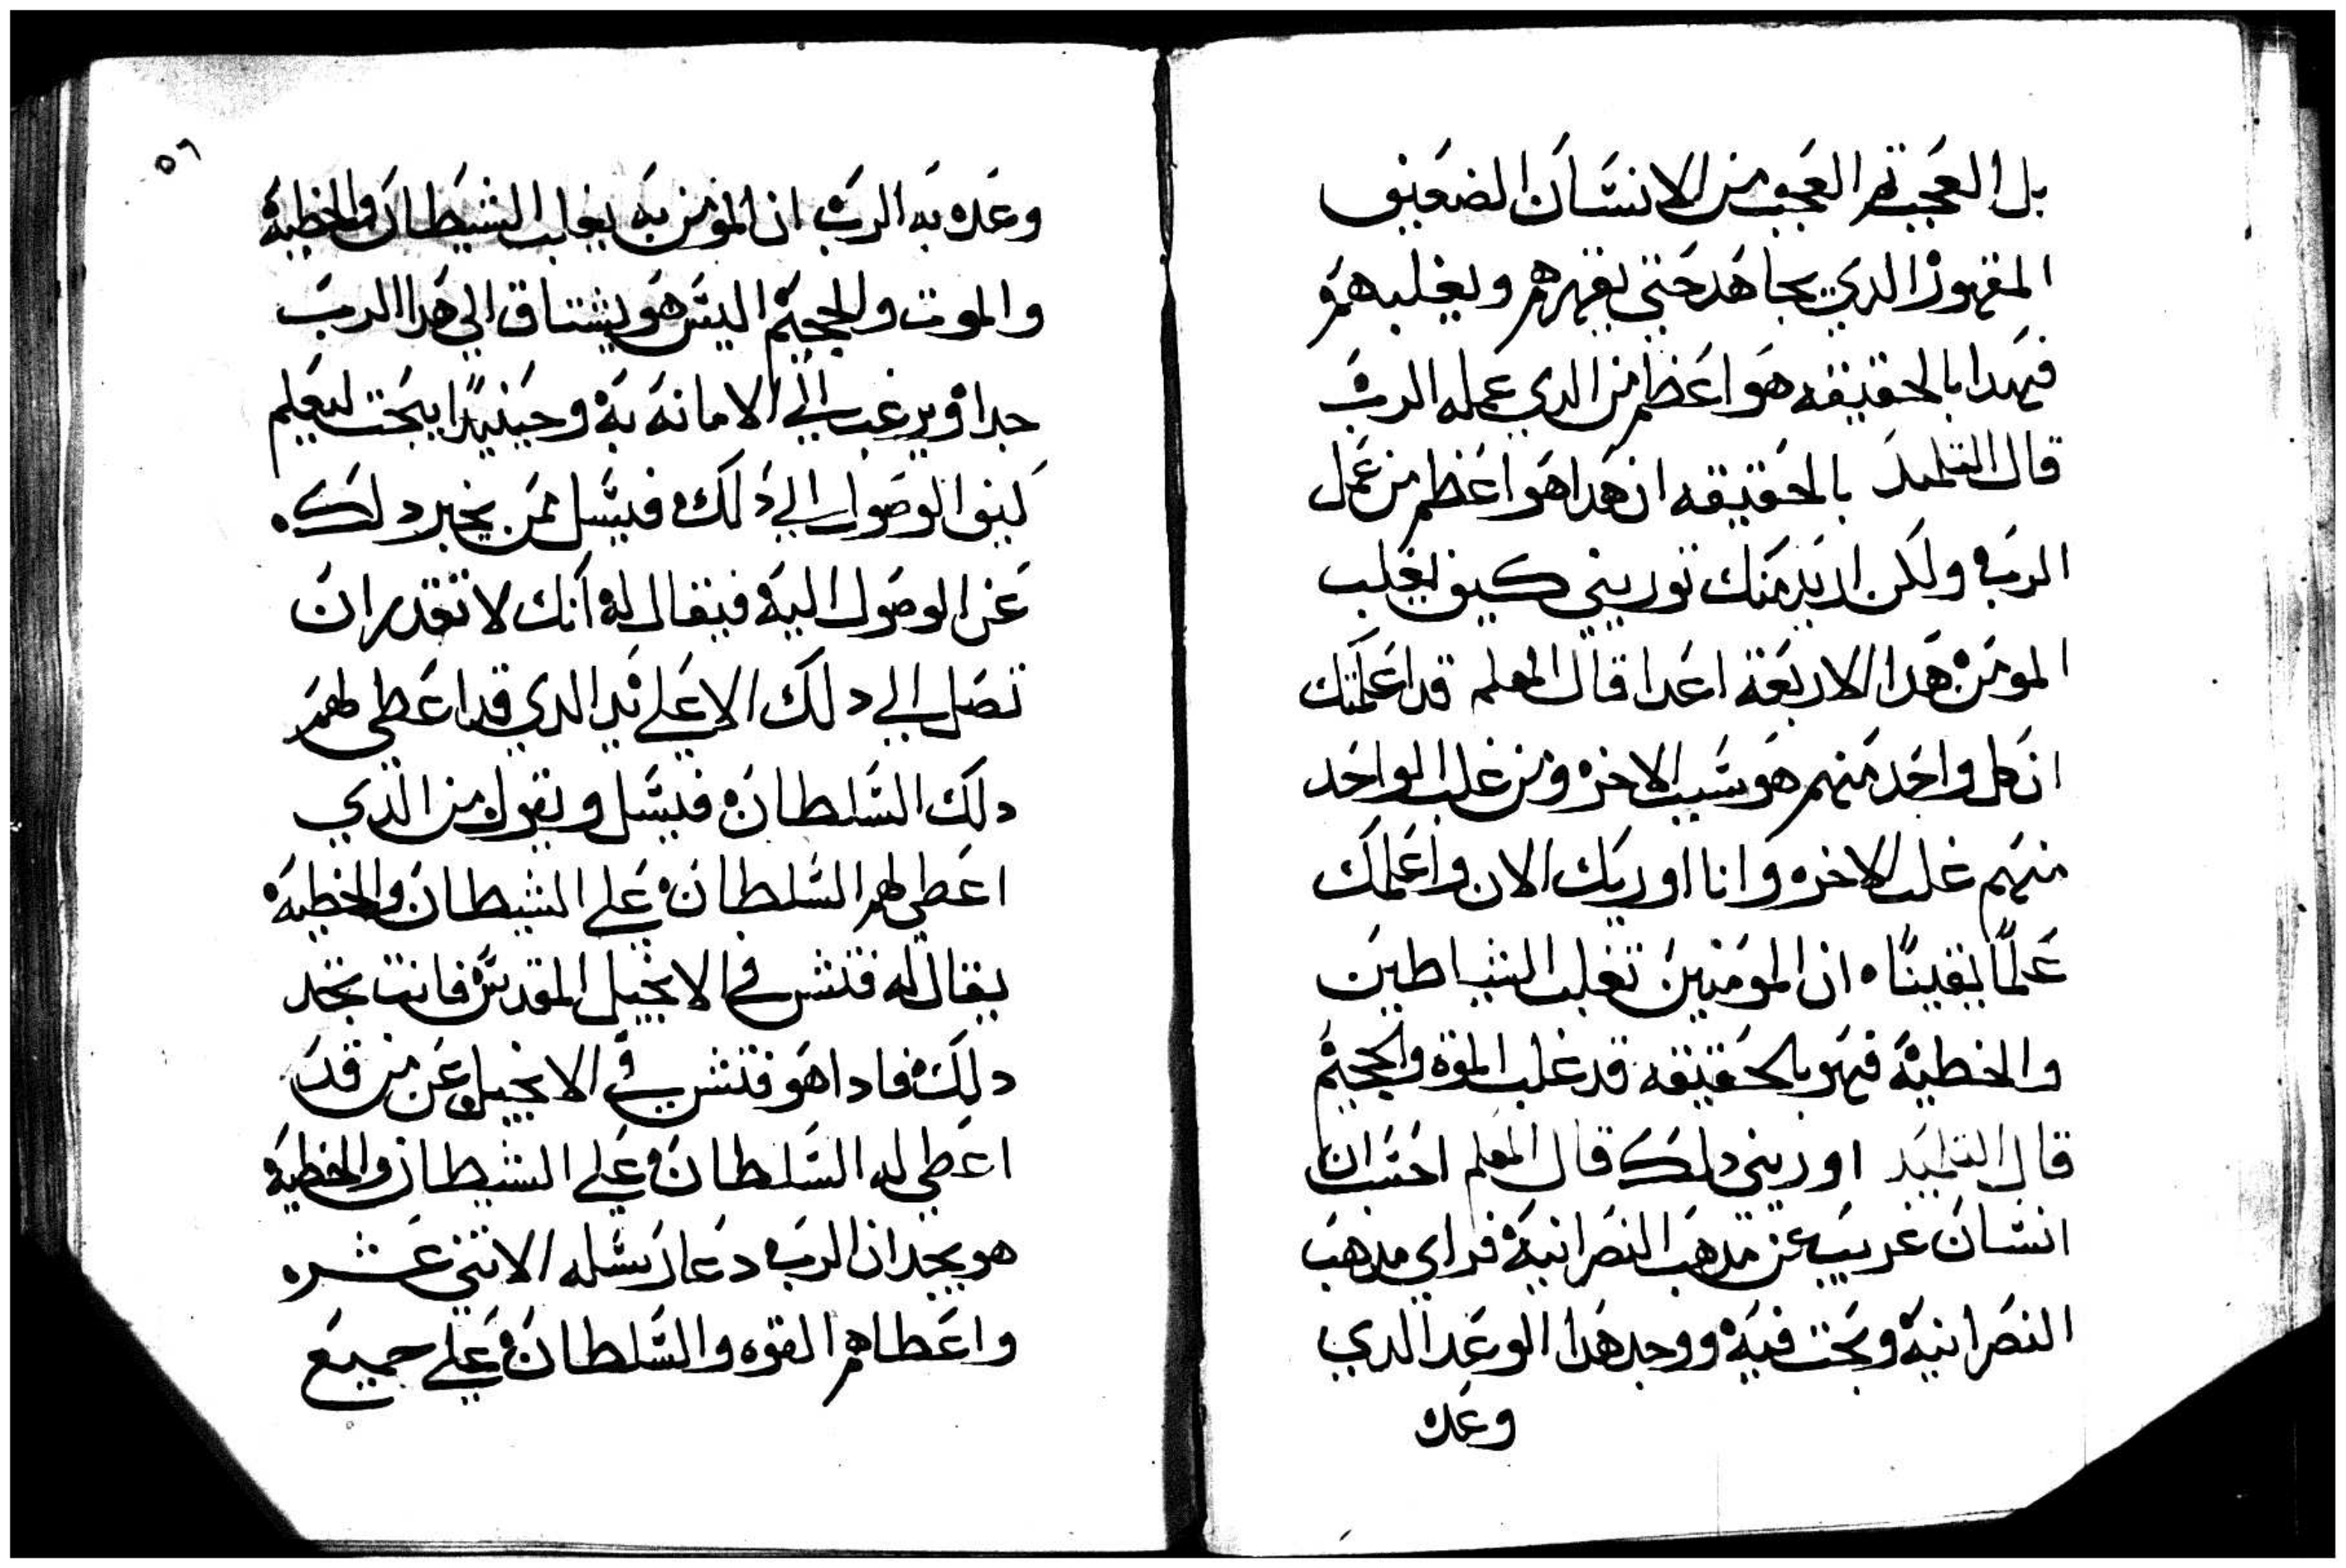 بل العجب تم العجب من الانسان الضعيف
المقهور الدي يجاهد حتي يقهرهم ويغلبهم
فهدا بالحقيقه هو اعظم من الدي عمله الرب
قال التلميد بالحقيقه ان هدا هو اعظم من عمل
الرب ولكن اريد منك توريني كيف يغلب
المومن هدا الاربعة اعدا قال المعلم قد اعلمتك
ان كل واحد منهم هو سبب الاخر ومن غلب الواحد
منهم غلب الاخر وانا اوريك الان واعلمك
علمًا يقينًا ان المومنين تغلب الشياطين
والخطية فهو بالحقيقه قد غلب الموة والجحيم
قال التلميد اوريني دلك قال المعلم احسب ان
انسان غريب عن مدهب النصرانية فراي مدهب
النصرانية وبحت فية ووجد هدا الوعد الدي
وعده
٥٦
وعده به الرب ان المومن به يغلب الشيطان والخطية
والموت والجحيم اليس هو يشتاق الي هدا الرب
جدا ويرغب الي الامانه به وحينيدًا يبحت ليعلم
كيف الوصول الي دلك فيسل ممن يخبر دلك
عن الوصول الية فيقال له انك لا تقدر ان
تصل الي دلك الا علي يد الدي قد اعطي لهم
دلك السلطان فيسل ويقول من الدي
اعطي لهم السلطان علي الشيطان والخطية
يقال له فتش في الانجيل المقدس فانت تجد
دلك فادا هو فتش في الانجيل عن من قد
اعطي له السلطان علي الشيطان والخطية
هو يجد ان الرب دعا رسله الاتني عشره
واعطاهم القوه والسلطان علي جميع